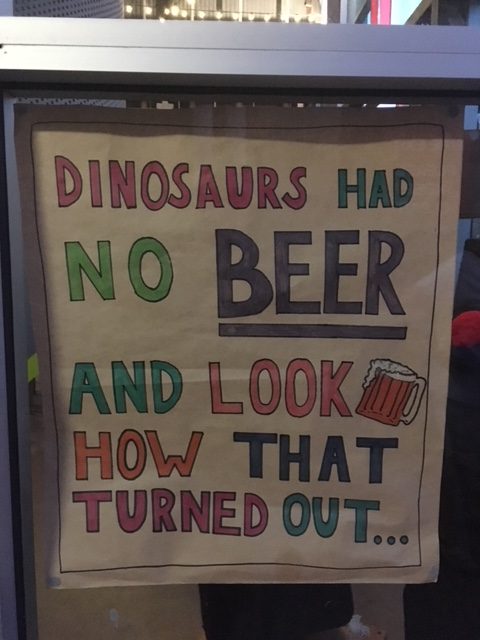 DINOSAURS HAD
NO BEER
AND LOOK
HOW THAT
TURNED OUT...